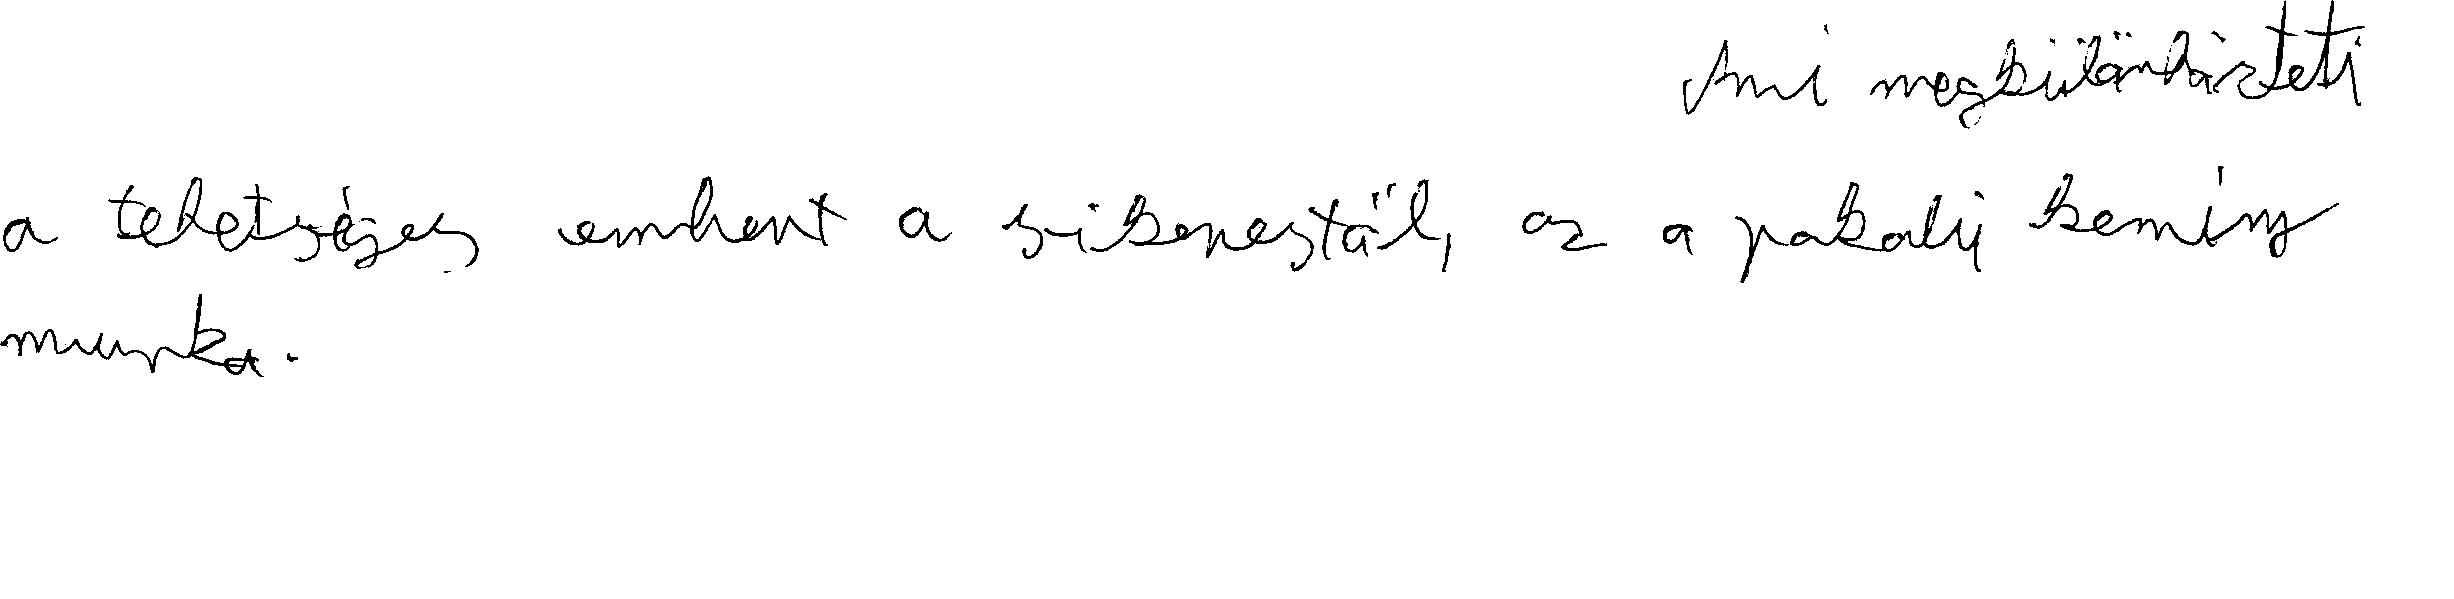 Ami megkülönbözteti
a tehetséges embert a sikerestől, az a pokoli kemény
munka.